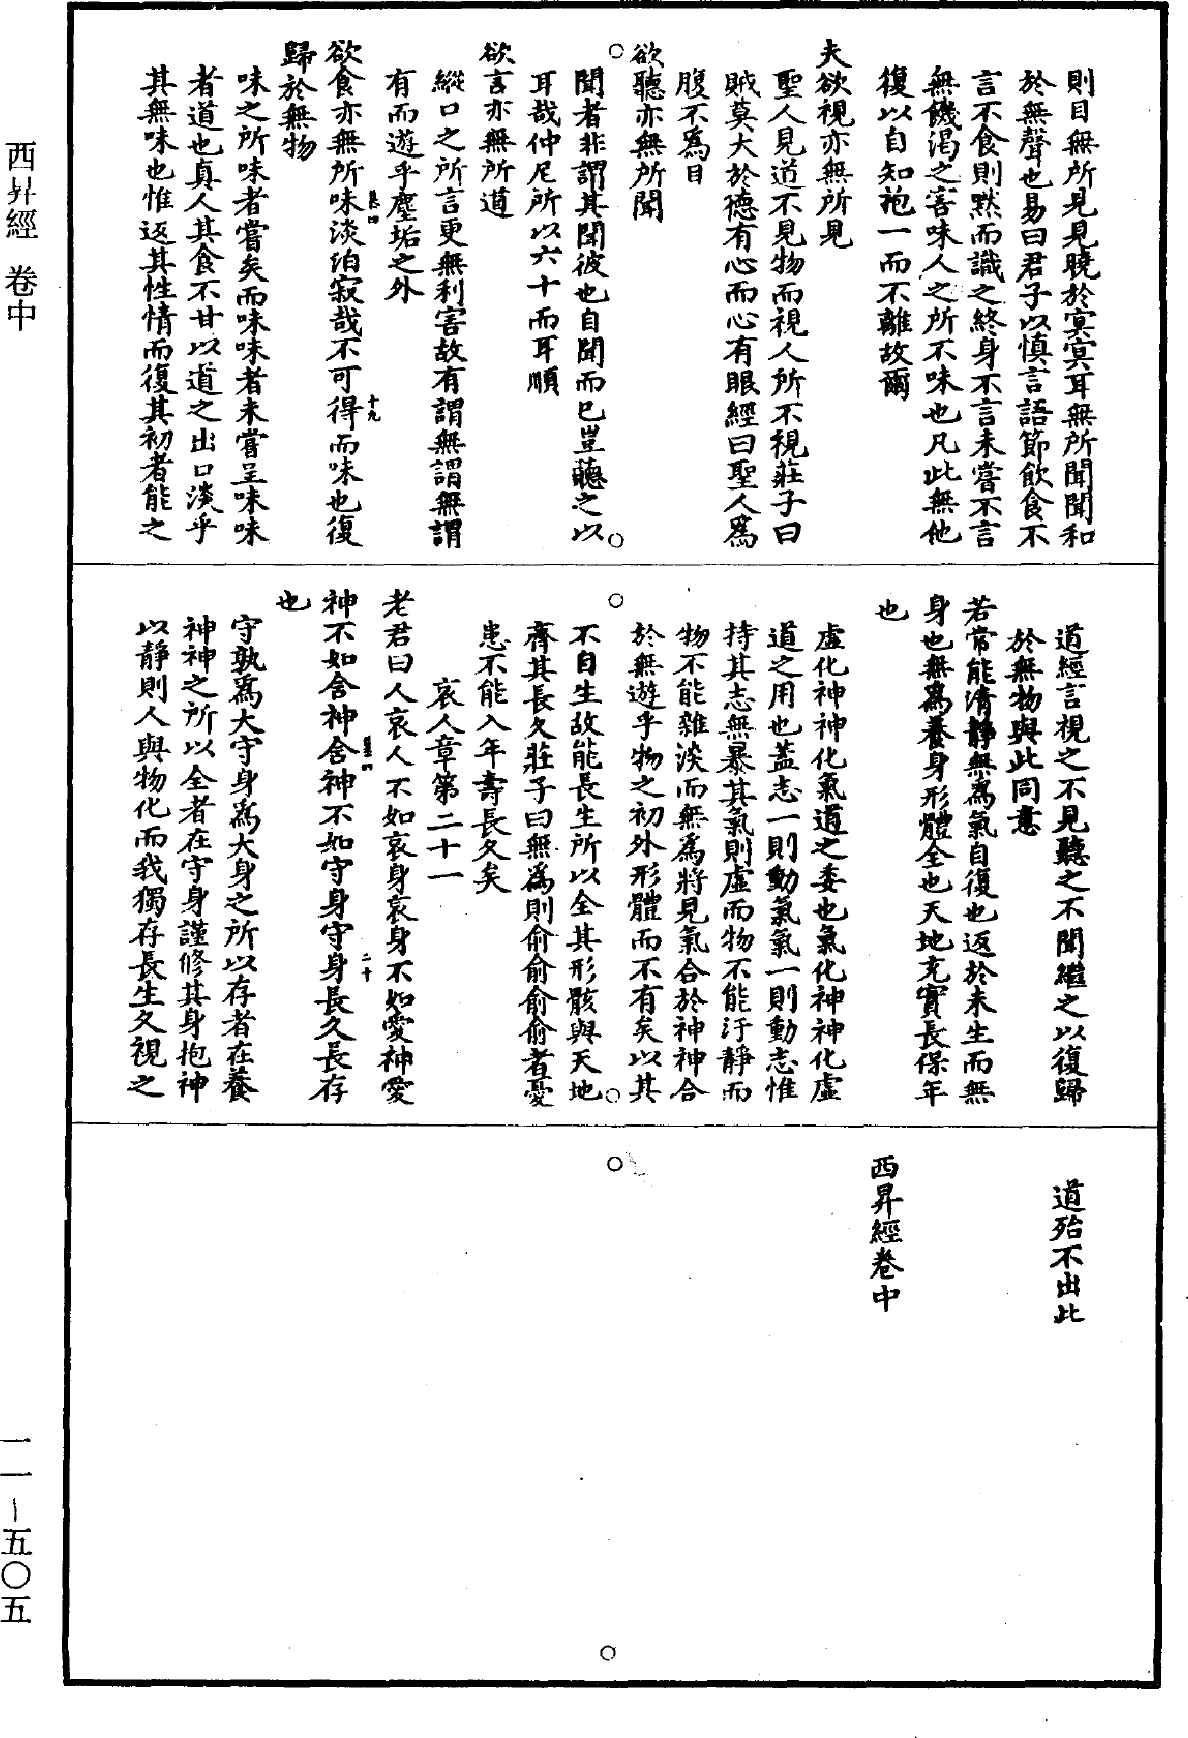 則目無所見見曉於冥冥耳無所聞聞和
於無聲也易曰君子以慎言語節飲食不
言不食則黙而識之終身不言未嘗不言
無饑渴之害味人之所不味也凡此無他
復以自知袍一而不離故爾
夫欲視亦無所見
聖人見道不見物而視人所不視莊子曰
賊莫大於德有心而心有眼經曰聖人爲
腹不爲目
欲聽亦無所聞
聞者非謂其聞彼也自聞而已豈聽之以
耳哉仲尼所以六十而耳順
欲言亦無所道
縱口之所言更無利害故有謂無謂無謂
有而遊乎塵垢之外
欲食亦無所味淡泊寂哉不可得而味也復
十九
歸於無物
味之所味者嘗矣而味味者未嘗呈味味
者道也真人其食不甘以道之出口淡乎
其無味也惟返其性情而復其初者能之
道經言視之不見聽之不聞繼之以復歸
於無物與此同意
若常能清靜無爲氣自復也返於未生而無
身也無爲養身形體全也天地充實長保年
也
虛化神神化氣道之委也氣化神神化虛
道之用也蓋志一則動氣氣一則動志惟
持其志無暴其氣則虛而物不能汙靜而
物不能雜淡而無爲將見氣合於神神合
於無遊乎物之初外形體而不有矣以其
不自生故能長生所以全其形骸與天地
齊其長久莊子曰無爲則俞俞俞俞者憂
患不能入年壽長久矣
哀人章第二十一
老君曰人哀人不如哀身哀身不如愛神愛
神不如舍神舍神不如守身守身長久長存
二十
也
守孰爲大守身爲大身之所以存者在養
神神之所以全者在守身謹修其身抱神
以靜則人與物化而我獨存長生久視之
道殆不出此
西昇經卷中
西昇經 卷中
一一－五〇五